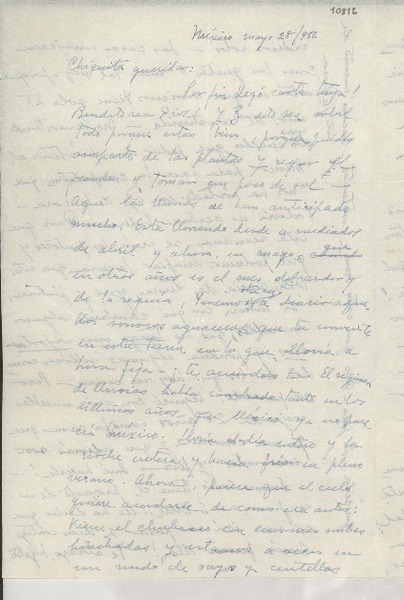 10812
México mayo 28/952
Chiquita querida:
Por fin llegó carta tuya!
Bendito sea Dios! Y Bendito sea sobre
todo porque estás bien, porque puedes
ocuparte de las plantas y regar el
y tomar un poco de sol —
Aquí las lluvias se han anticipado
mucho. Está lloviendo desde a mediados
de abril y ahora, en mayo, que
en otros años es el mes del ardor y
de la sequía, tenemos a diario aque-
llos sonoros aguaceros que tú conociste
en esta tierra en los que llovía a
hora fija — ¿te acuerdas? El régimen
de lluvias había cambiado tanto en los
últimos años que México ya no pare-
cía México. Llovía el día entero y la
noche entera y hacía frío en pleno
verano. Ahora parece que el cielo
quiere acordarse de como era antes:
Viene el chubasco con enormes nubes
hinchadas y estamos a veces en
un nudo de rayos y centellas